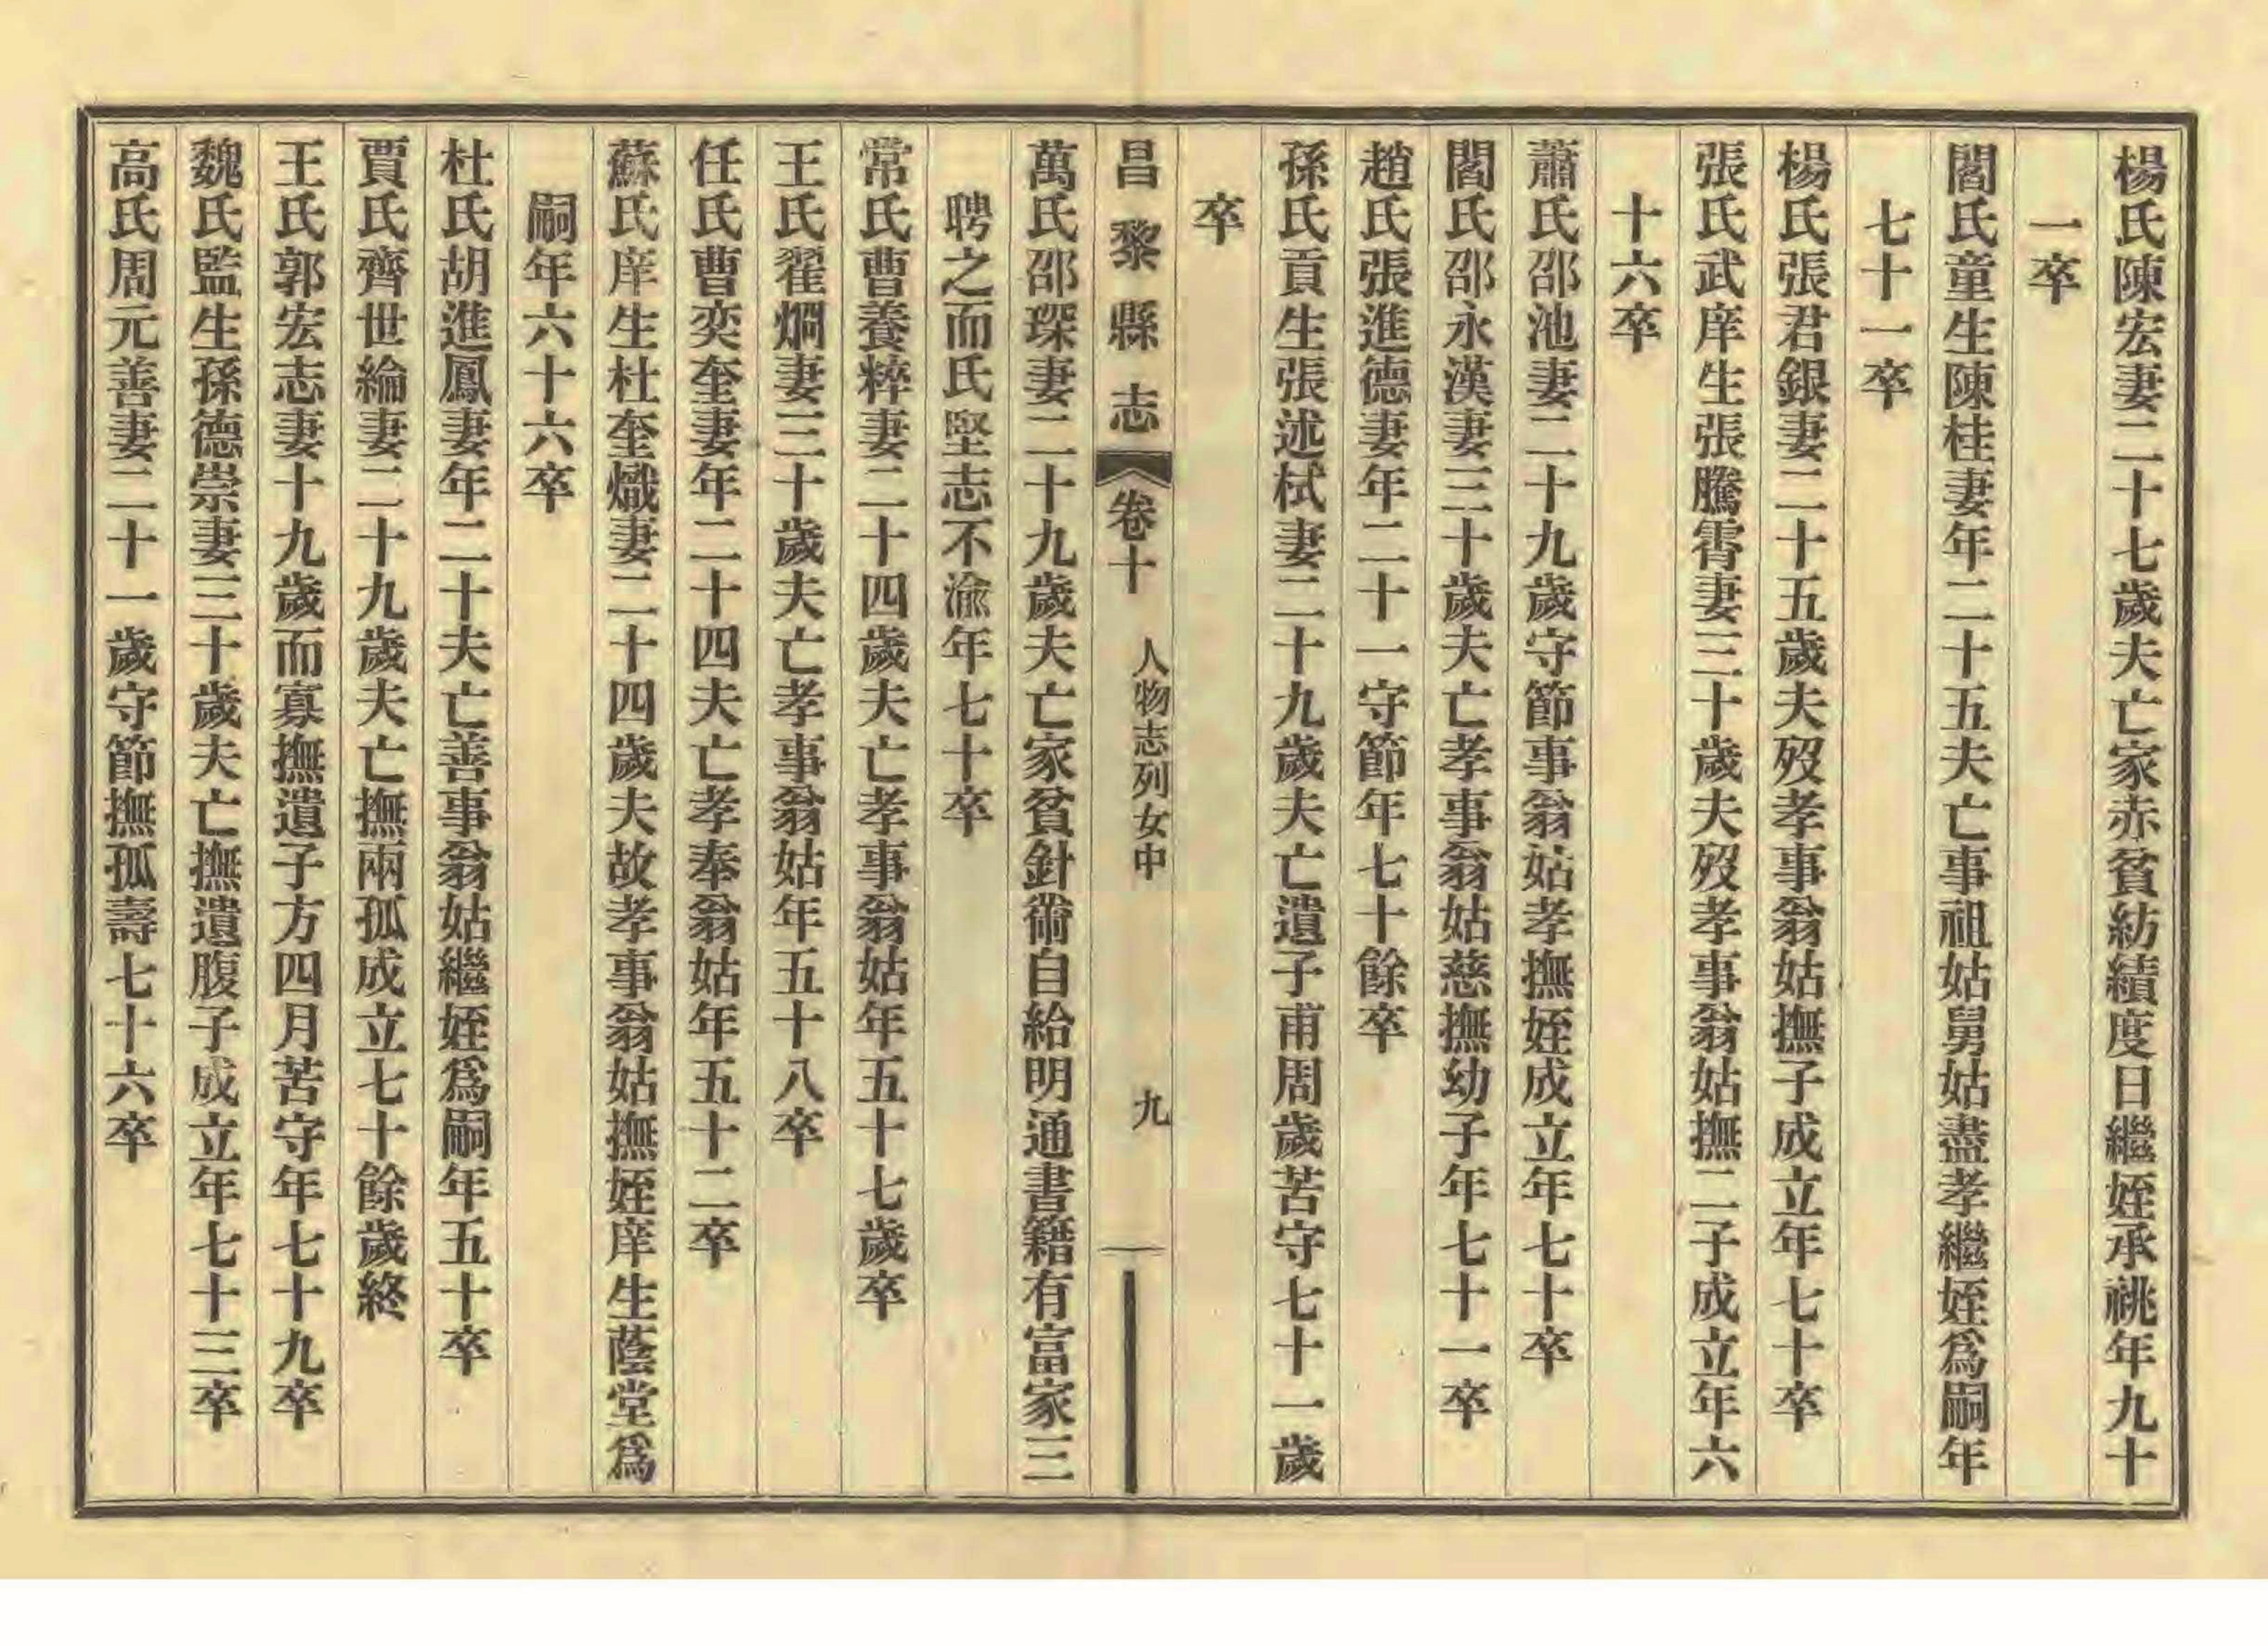 楊氏陳宏妻二十七歲夫亡家赤貧紡績度日繼姪承祧年九十
一卒
閻氏童生陳桂妻年二十五夫亡事祖姑舅姑盡孝繼姪爲嗣年
七十一卒
楊氏張君銀妻二十五歲夫歿孝事翁姑撫子成立年七十卒
張氏武庠生張騰霄妻三十歲夫歿孝事翁姑撫二子成立年六
十六卒
蕭氏邵池妻二十九歲守節事翁姑孝撫姪成立年七十卒
閻氏邵永漢妻三十歲夫亡孝事翁姑慈撫幼子年七十一卒
趙氏張進德妻年二十一守節年七十餘卒
孫氏貢生張述栻妻二十九歲夫亡遺子甫周歲苦守七十一歲
卒
昌黎縣志 卷十 人物志列女中 九
萬氏邵琛妻二十九歲夫亡家貧針黹自給明通書籍有富家三
聘之而氏堅志不渝年七十卒
常氏曹養粹妻二十四歲夫亡孝事翁姑年五十七歲卒
王氏翟烱妻三十歲夫亡孝事翁姑年五十八卒
任氏曹奕奎妻年二十四夫亡孝奉翁姑年五十二卒
蘇氏庠生杜奎熾妻二十四歲夫故孝事翁姑撫姪庠生蔭堂爲
嗣年六十六卒
杜氏胡進鳳妻年二十夫亡善事翁姑繼姪爲嗣年五十卒
賈氏齊世綸妻二十九歲夫亡撫兩孤成立七十餘歲終
王氏郭宏志妻十九歲而寡撫遺子方四月苦守年七十九卒
魏氏監生孫德崇妻三十歲夫亡撫遺腹子成立年七十三卒
高氏周元善妻二十一歲守節撫孤壽七十六卒